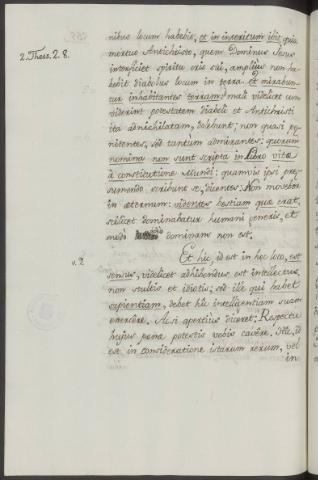 nibus locum habebit, et in interitum ibit, quia
2. Thess. 2. 8.
mortuo Antichristo, quem Dominus Jesus
interficiet spiritu oris sui, amplius non ha-
bebit diabolus locum in terra. et mirabun-
tur inhabitantes terram, mali videlicet cum
viderint potestatem diaboli et Antichristi
ita adnichilatam, dolebunt; non quasi pœ-
nitentes, sed tantum admirantes: quorum
nomina non sunt scripta in Libro vitæ
à constitutione Mundi: quamvis ipsi præ-
sumendo scribunt se, dicentes: Non movebor
in æternum: videntes bestiam quæ erat,
scilicet dominabatur humani generis, et
modo dominans non est.
v. 9
Et hic, id est in hoc loco, est
sensus, videlicet adhibendus, est intellectus,
non stultis et idiotis; sed ille qui habet
sapientiam, debet hîc intelligentiam suam
exercere. Ac si apertius diceret; Respectu
hujus pœna potestis vobis cavere. Ille, id
est in consideratione istarum rerum, vel
in